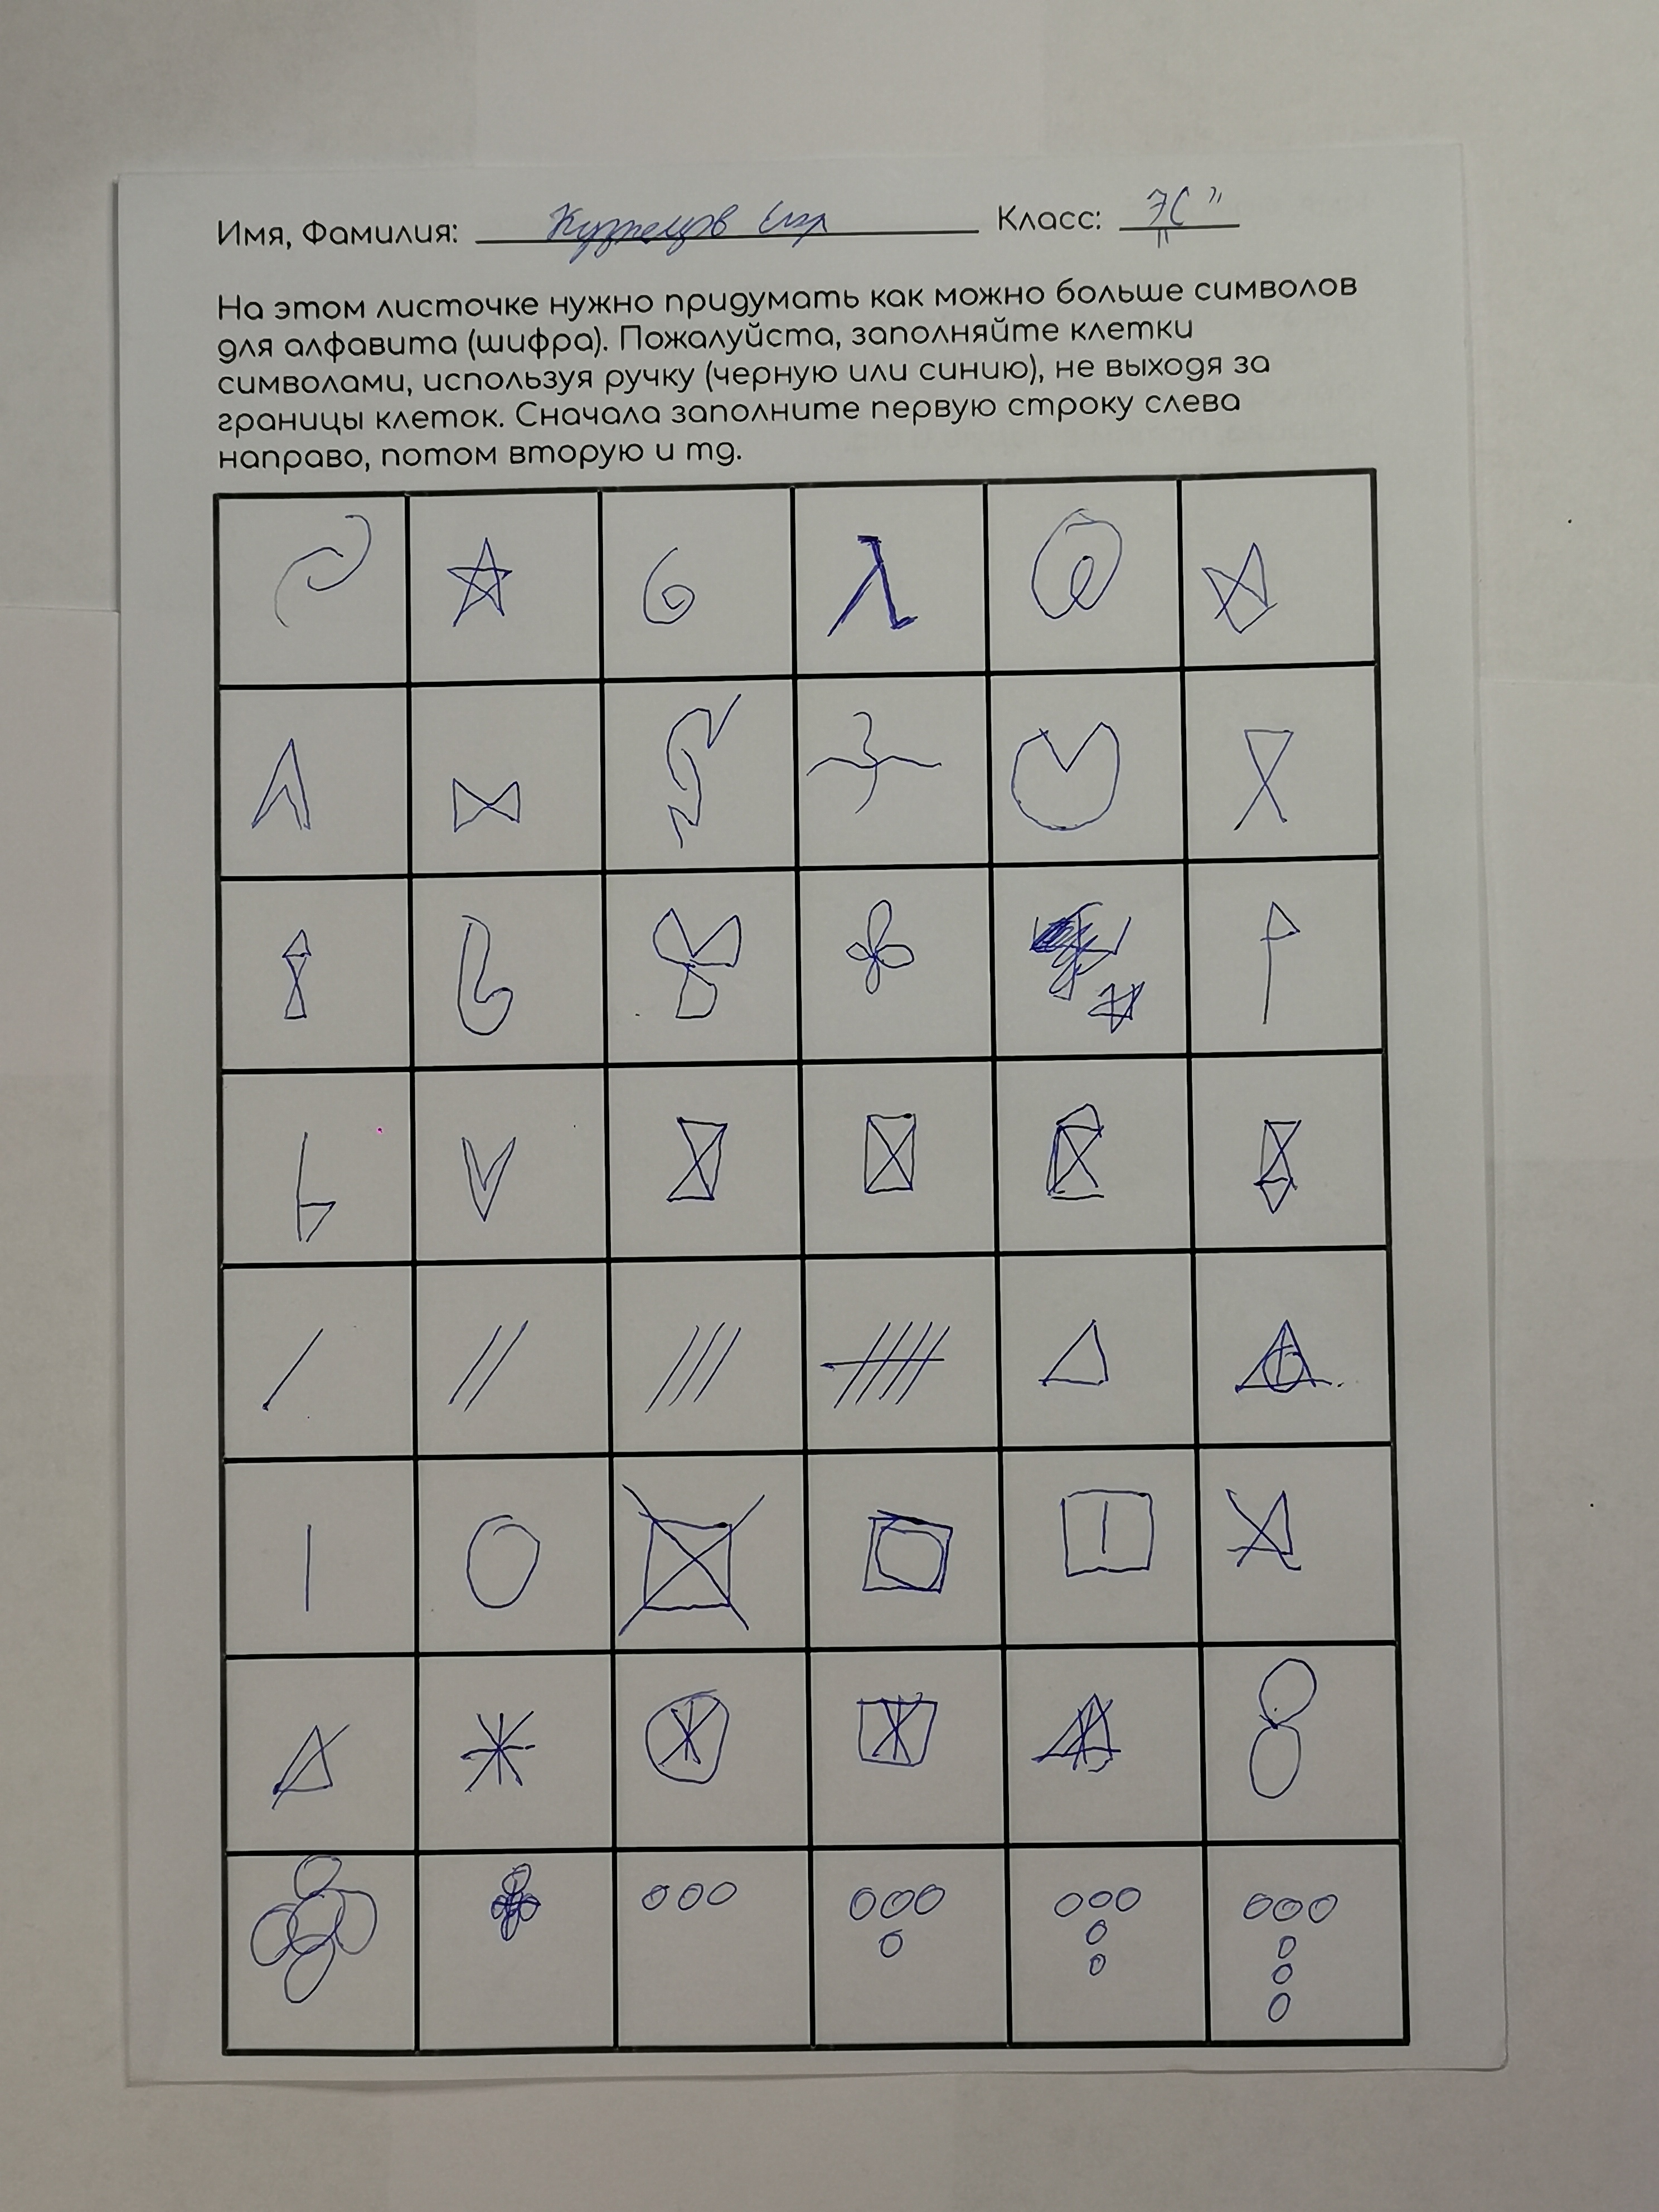 Имя, Фамилия: Кузнецов Класс: 7С"
На этом листочке нужно придумать как можно больше символов
для алфавита (шифра). Пожалуйста, заполняйте клетки
символами, используя ручку (черную или синию), не выходя за
границы клеток. Сначала заполните первую строку слева
направо, потом вторую и тд.